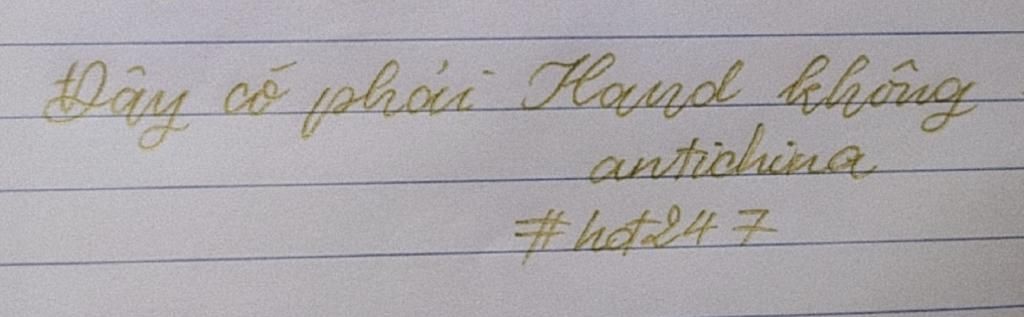 Đây có phải Hand không
antichina
#hot247